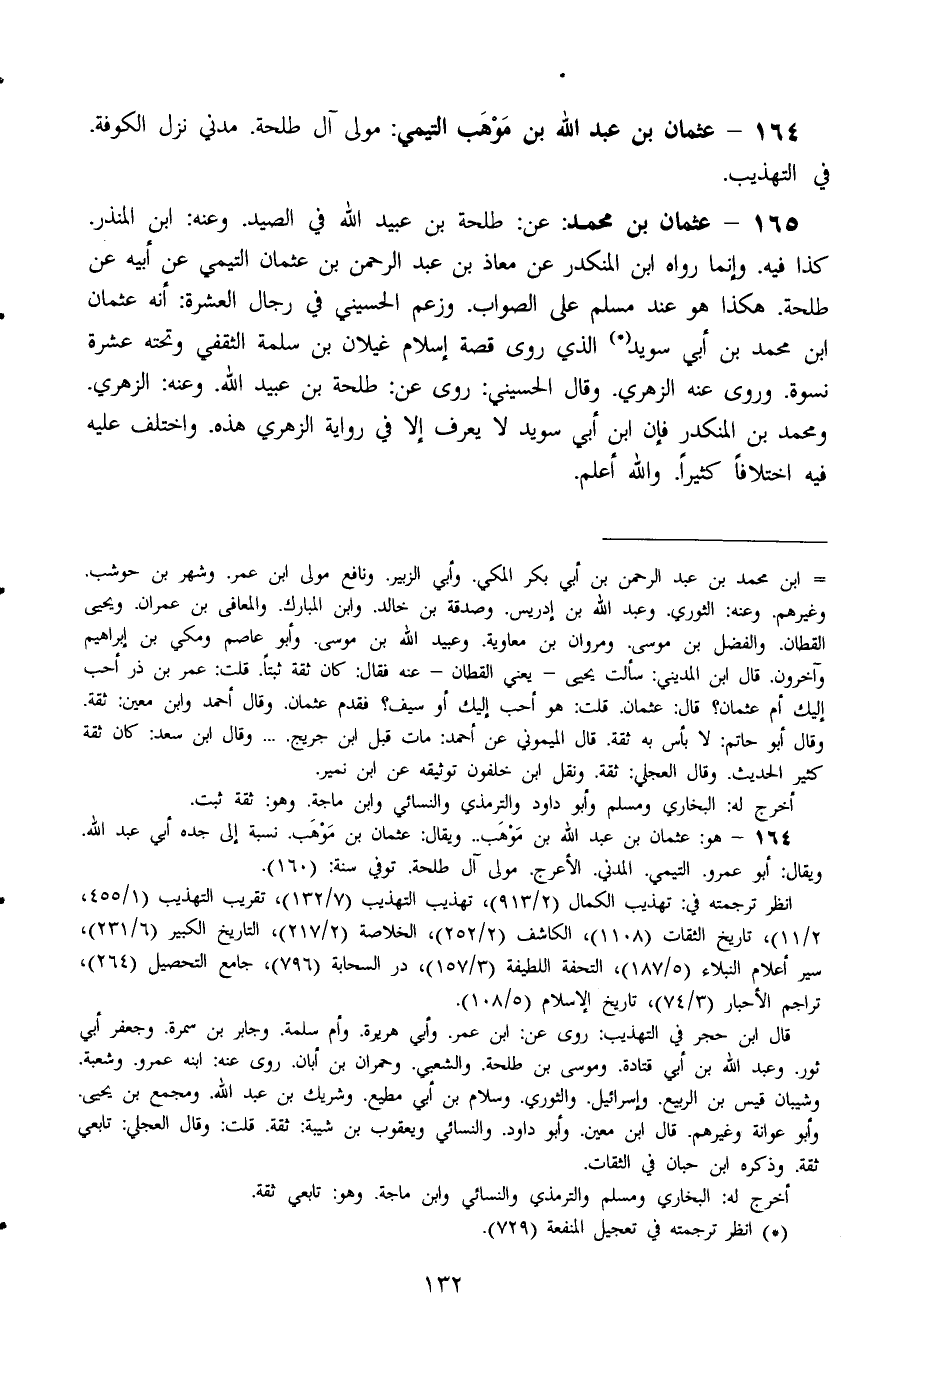 ١٦٤ – عثمان بن عبد الله بن مَوْهَب التيمي: مولى آل طلحة. مدني نزل الكوفة.
في التهذيب.
١٦٥ – عثمان بن محمد: عن: طلحة بن عبيد الله في الصيد. وعنه: ابن المنذر.
كذا فيه. وإنما رواه ابن المنكدر عن معاذ بن عبد الرحمن بن عثمان التيمي عن أبيه عن
طلحة. هكذا هو عند مسلم على الصواب. وزعم الحسيني في رجال العشرة: أنه عثمان
ابن محمد بن أبي سويد(*) الذي روى قصة إسلام غيلان بن سلمة الثقفي وتحته عشرة
نسوة. وروى عنه الزهري. وقال الحسيني: روى عن: طلحة بن عبيد الله. وعنه: الزهري.
ومحمد بن المنكدر فإن ابن أبي سويد لا يعرف إلا في رواية الزهري هذه. واختلف عليه
فيه اختلافاً كثيراً. والله أعلم.
= ابن محمد بن عبد الرحمن بن أبي بكر المكي. وأبي الزبير. ونافع مولى ابن عمر. وشهر بن حوشب.
وغيرهم. وعنه: الثوري. وعبد الله بن إدريس. وصدقة بن خالد. وابن المبارك. والمعافى بن عمران. ويحيى
القطان. والفضل بن موسى. ومروان بن معاوية. وعبيد الله بن موسى. وأبو عاصم ومكي بن إبراهيم
وآخرون. قال ابن المديني: سألت يحيى – يعني القطان – عنه فقال: كان ثقة ثبتاً. قلت: عمر بن ذر أحب
إليك أم عثمان؟ قال: عثمان. قلت: هو أحب إليك أو سيف؟ فقدم عثمان. وقال أحمد وابن معين: ثقة.
وقال أبو حاتم: لا بأس به ثقة. قال الميموني عن أحمد: مات قبل ابن جريج. ... وقال ابن سعد: كان ثقة
كثير الحديث. وقال العجلي: ثقة. ونقل ابن خلفون توثيقه عن ابن نمير.
أخرج له: البخاري ومسلم وأبو داود والترمذي والنسائي وابن ماجة. وهو: ثقة ثبت.
١٦٤ – هو: عثمان بن عبد الله بن مَوْهَب.. ويقال: عثمان بن مَوْهَب. نسبة إلى جده أبي عبد الله.
ويقال: أبو عمرو. التيمي. المدني. الأعرج. مولى آل طلحة. توفي سنة: (١٦٠).
انظر ترجمته في: تهذيب الكمال (٩١٣/٢)، تهذيب التهذيب (١٣٢/٧)، تقريب التهذيب (٤٥٥/١،
١١/٢)، تاريخ الثقات (١١٠٨)، الكاشف (٢٥٢/٢)، الخلاصة (٢١٧/٢)، التاريخ الكبير (٢٣١/٦)،
سير أعلام النبلاء (١٨٧/٥)، التحفة اللطيفة (١٥٧/٣)، در السحابة (٧٩٦)، جامع التحصيل (٢٦٤)،
تراجم الأحبار (٧٤/٣)، تاريخ الإسلام (١٠٨/٥).
قال ابن حجر في التهذيب: روى عن: ابن عمر. وأبي هريرة. وأم سلمة. وجابر بن سمرة. وجعفر أبي
ثور. وعبد الله بن أبي قتادة. وموسى بن طلحة. والشعبي. وحمران بن أبان. روى عنه: ابنه عمرو. وشعبة.
وشيبان قيس بن الربيع. وإسرائيل. والثوري. وسلام بن أبي مطيع. وشريك بن عبد الله. ومجمع بن يحيى.
وأبو عوانة وغيرهم. قال ابن معين. وأبو داود. والنسائي ويعقوب بن شيبة: ثقة. قلت: وقال العجلي: تابعي
ثقة. وذكره ابن حبان في الثقات.
أخرج له: البخاري ومسلم والترمذي والنسائي وابن ماجة. وهو: تابعي ثقة.
(*) انظر ترجمته في تعجيل المنفعة (٧٢٩).
١٣٢